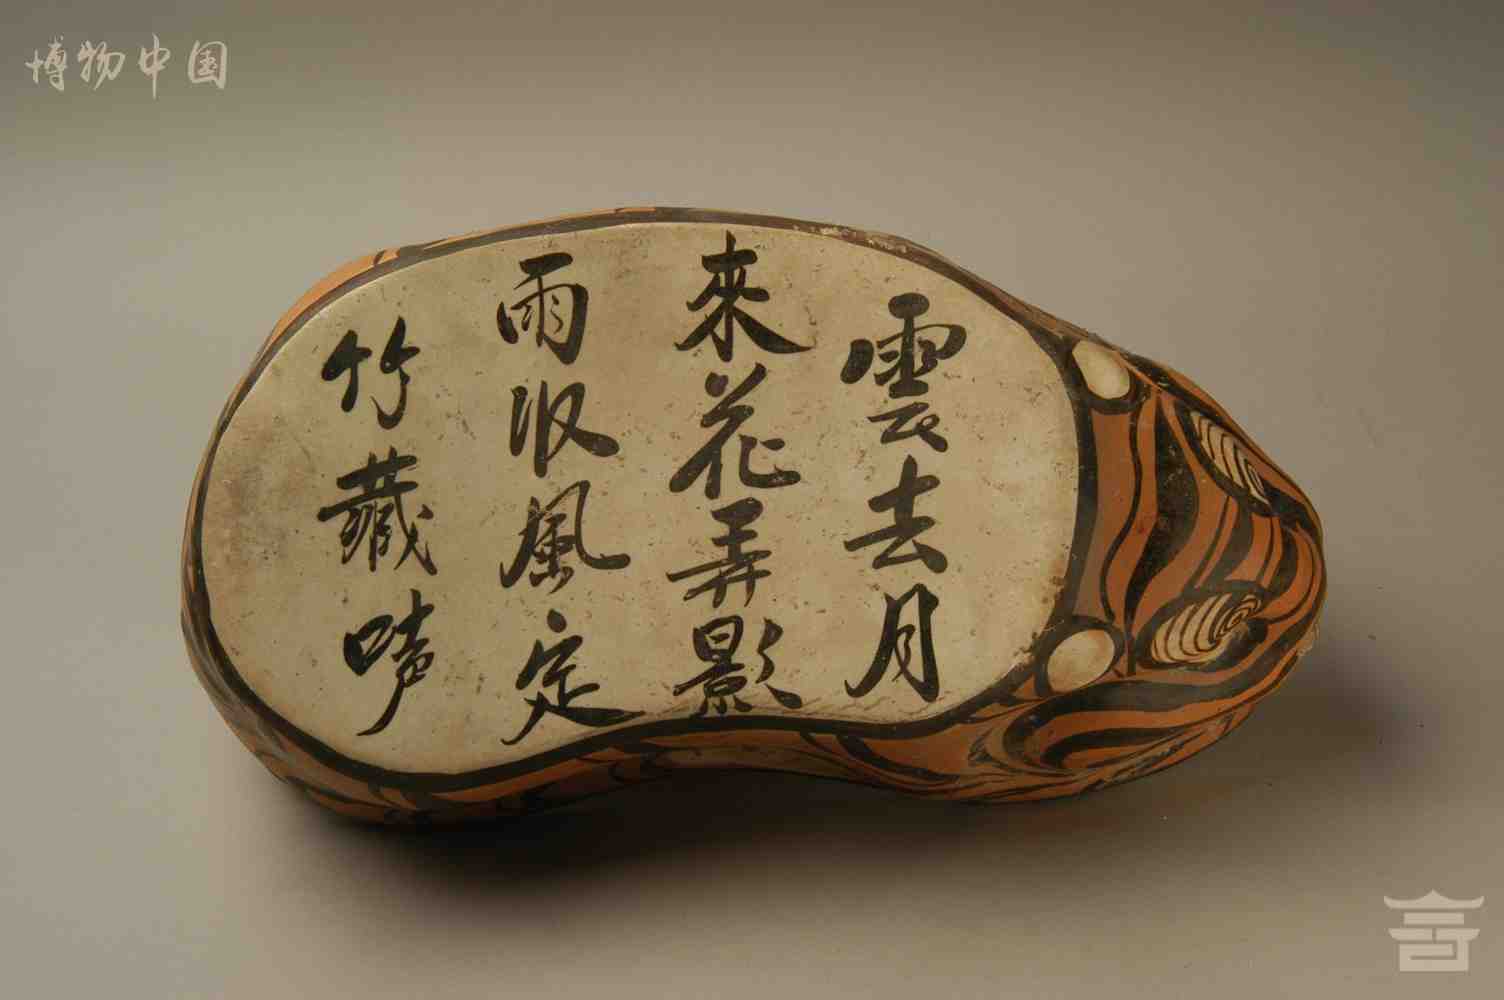 博物中国
雲去月
來花弄影
雨収風定
竹藏